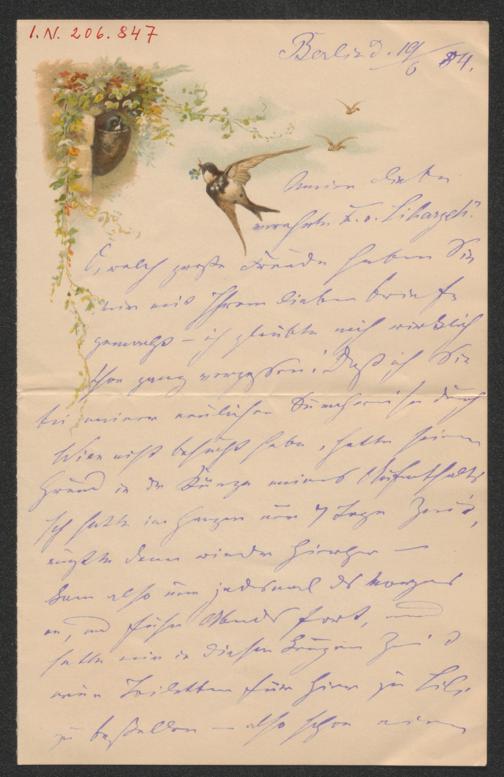 I.N. 206.847
Berlin d. 19/6 84.
Meine liebe
verehrte F. v. Liharzik!
O, welch große Freude haben Sie
mir mit Ihrem lieben Briefe
gemacht – ich glaubte mich wirklich
schon ganz vergessen! Daß ich Sie
bei meiner neulichen durch
Wien nicht besucht habe, hatte seinen
Grund in der Kürze meines Aufenthalts
Ich hatte im Ganzen nur 7 Tage Zeit,
mußte dann wieder hierher –
kam also nun jedesmal des Morgens
an, und fuhr Abends fort, und
hatte nur in dieser kurzen Zeit
meine Toiletten für hier zu
zu bestellen – also schon